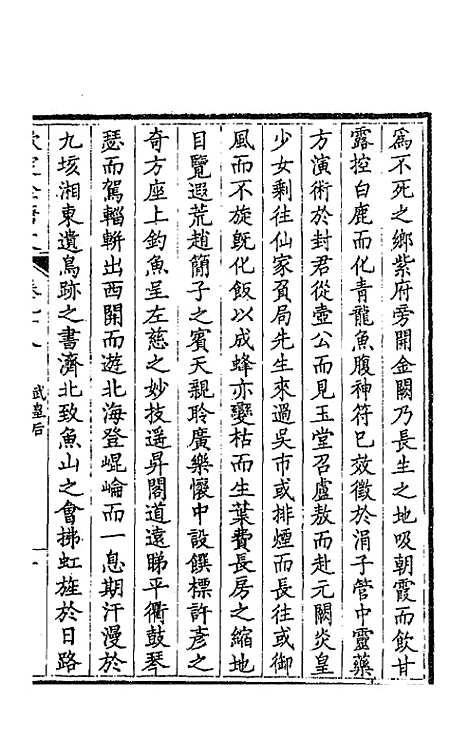 為不死之鄉紫府旁開金闕乃長生之地吸朝霞而飲甘
露控白鹿而化青龍魚腹神符已效徵於涓子管中靈藥
方演術於封君從壺公而見玉堂召盧敖而赴元闕炎皇
少女剩往仙家負局先生來過吳市或排煙而長往或御
風而不旋旣化飯以成蜂亦變枯而生葉費長房之縮地
目覽遐荒趙簡子之賓天親聆廣樂懷中設饌標許彥之
奇方座上釣魚呈左慈之妙技遥昇閣道遠睇平衢鼓琴
瑟而駕轀輧出西關而遊北海登崐崘而一息期汗漫於
九垓湘東遺鳥跡之書濟北致魚山之會拂虹旌於日路
武皇后